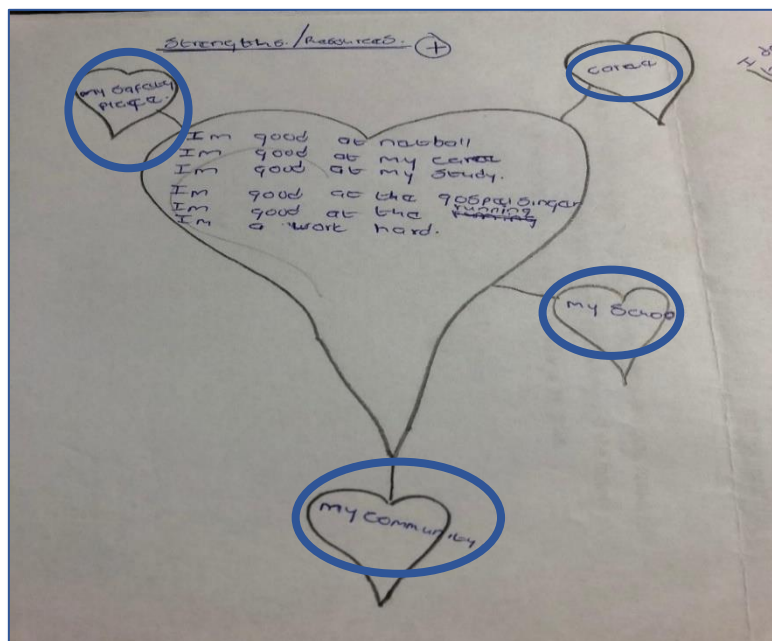 Strengths./Resources. +
my Safety
place.
Carea
Im good at netball
Im good at my carea
Im good at my study.
Im good at the gospel singer
Im good at the running
Im a work hard.
my School
my community